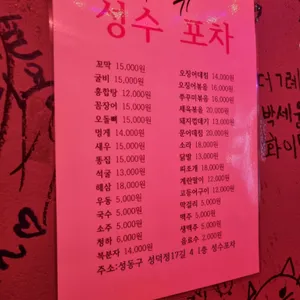 성수 포차
꼬막 15,000원
굴비 15,000원
홍합탕 12,000원
꼼장어 15,000원
오돌뼈 15,000원
멍게 14,000원
새우 15,000원
똥집 15,000원
석굴 13,000원
해삼 18,000원
우동 5,000원
국수 5,000원
소주 5,000원
청하 6,000원
복분자 14,000원
오징어데침 14,000원
오징어볶음 16,000원
쭈꾸미볶음 16,000원
제육볶음 20,000원
돼지껍데기 13,000원
문어데침 20,000원
소라 18,000원
닭발 15,000원
계란말이 12,000원
고등어구이 13,000원
막걸리 5,000원
맥주 5,000원
생맥주 5,000원
음료수 2,000원
주소:성동구 성덕정17길 4 1층 성수포차